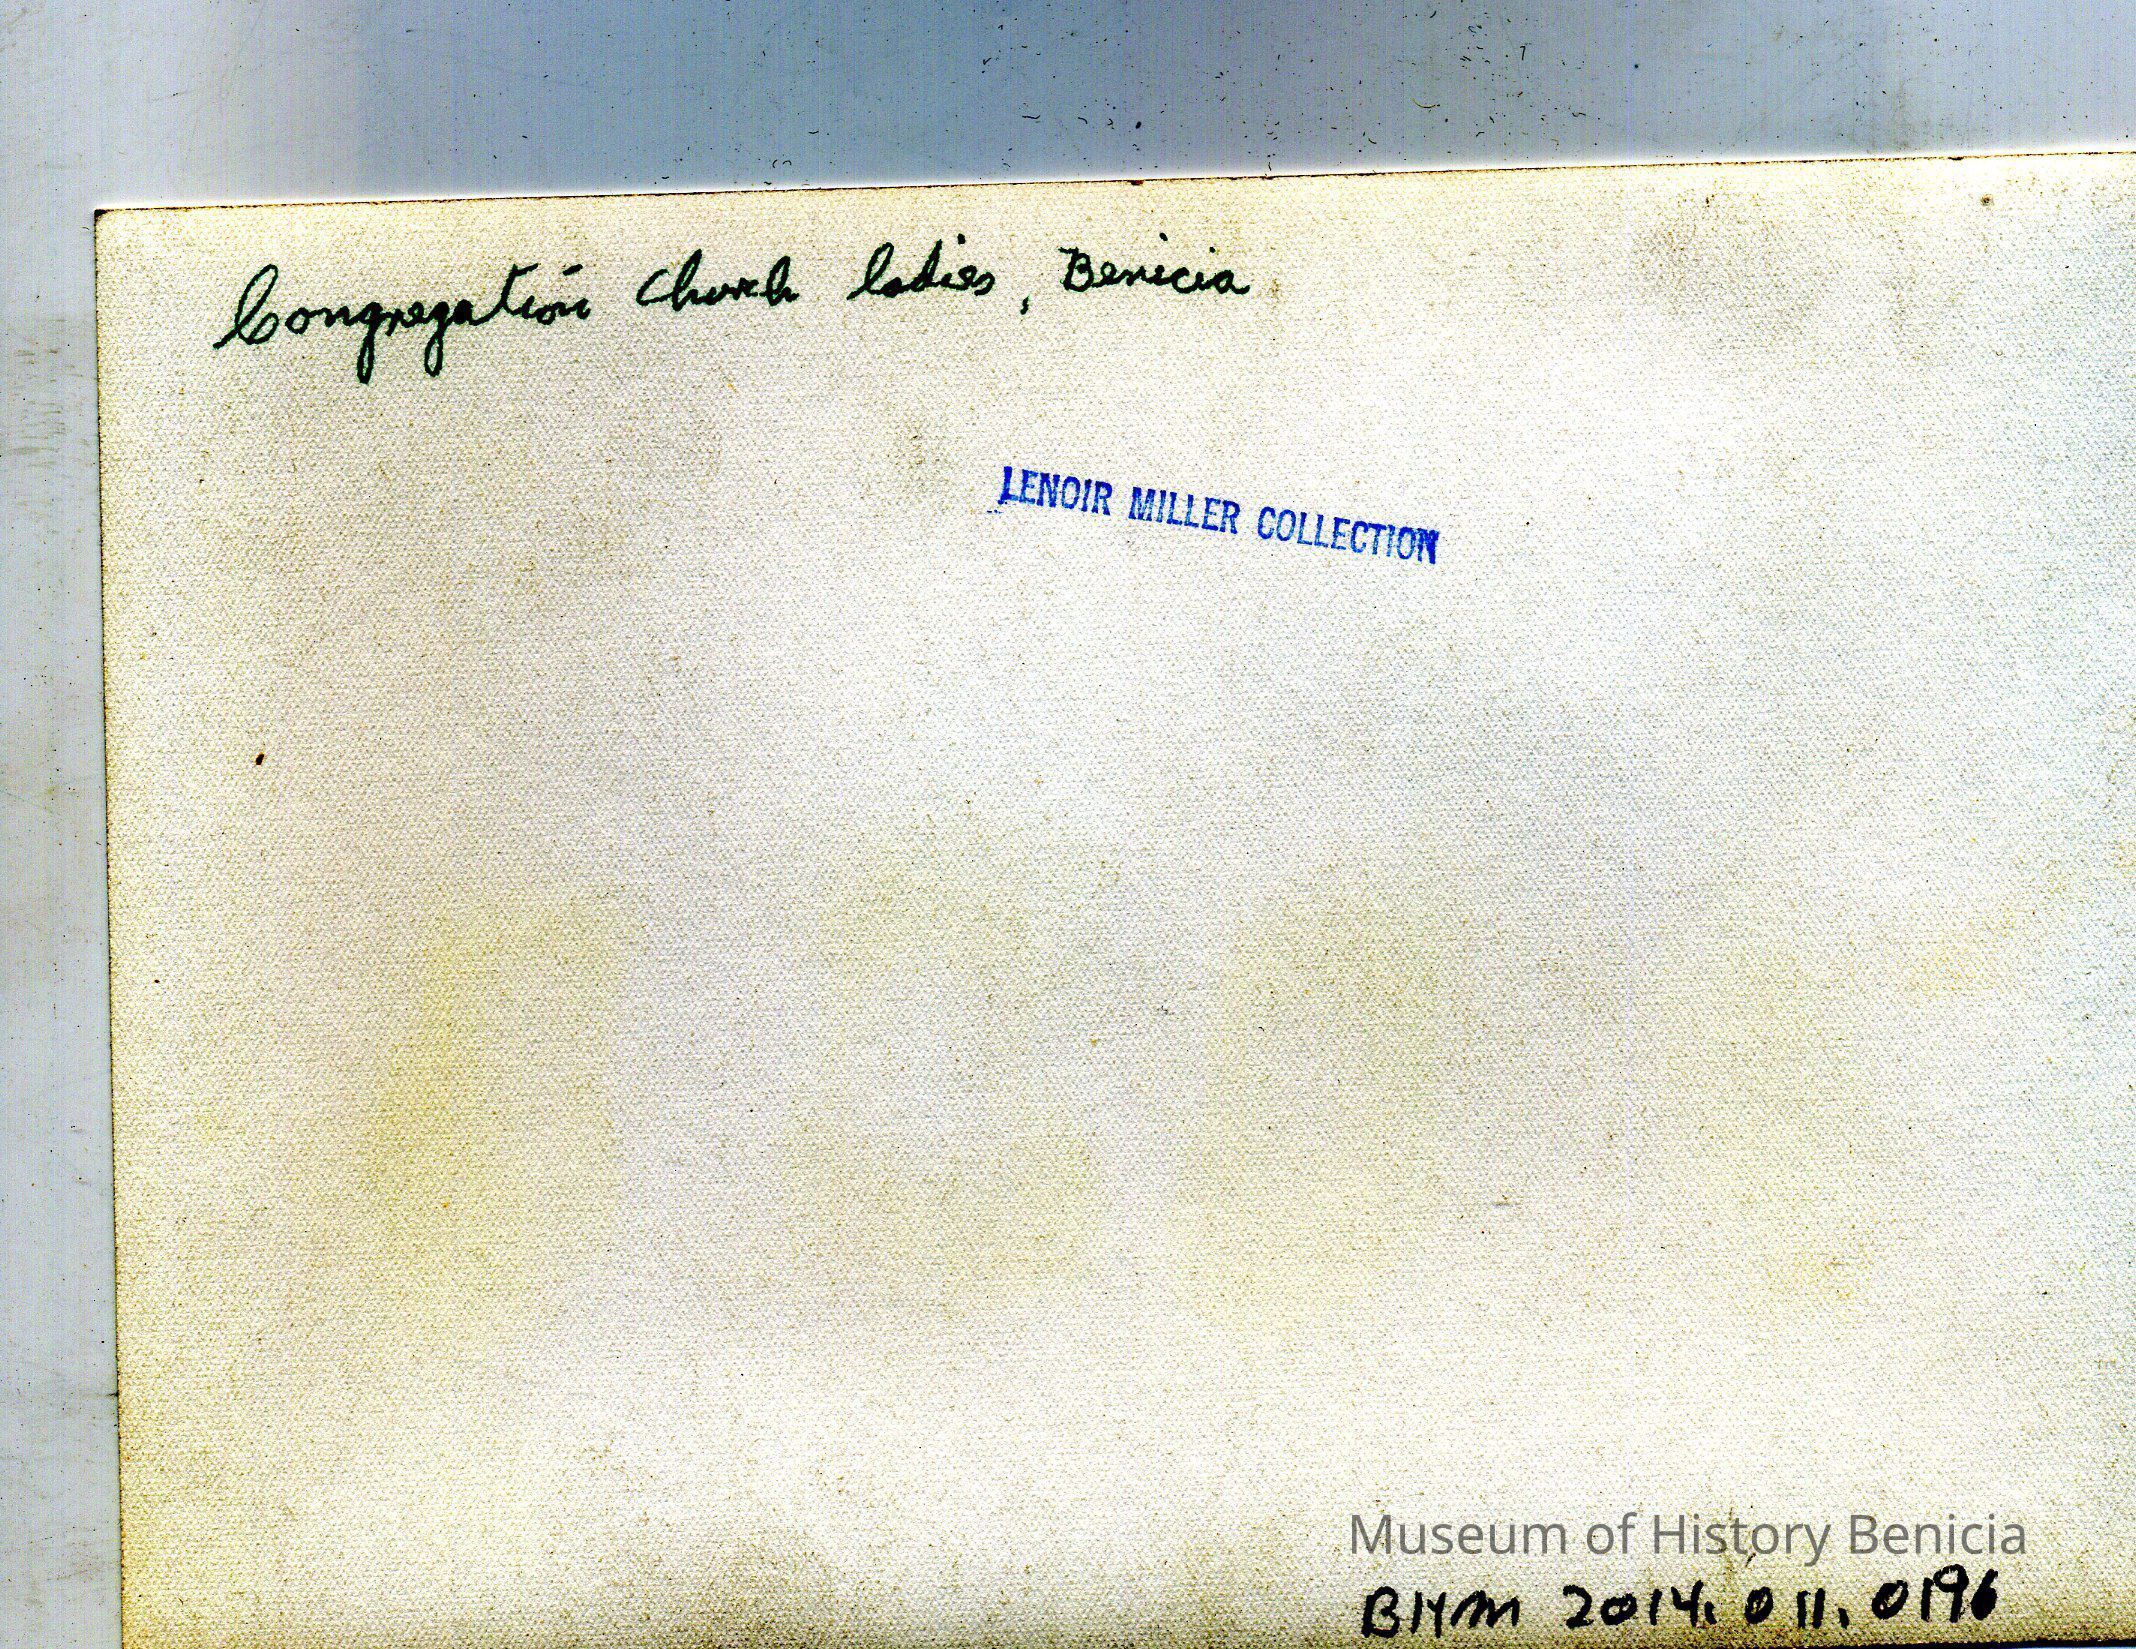 Congregation Church ladies, Benicia
LENOIR MILLER COLLECTION
Museum of History Benicia
BHM 2014.011.0196